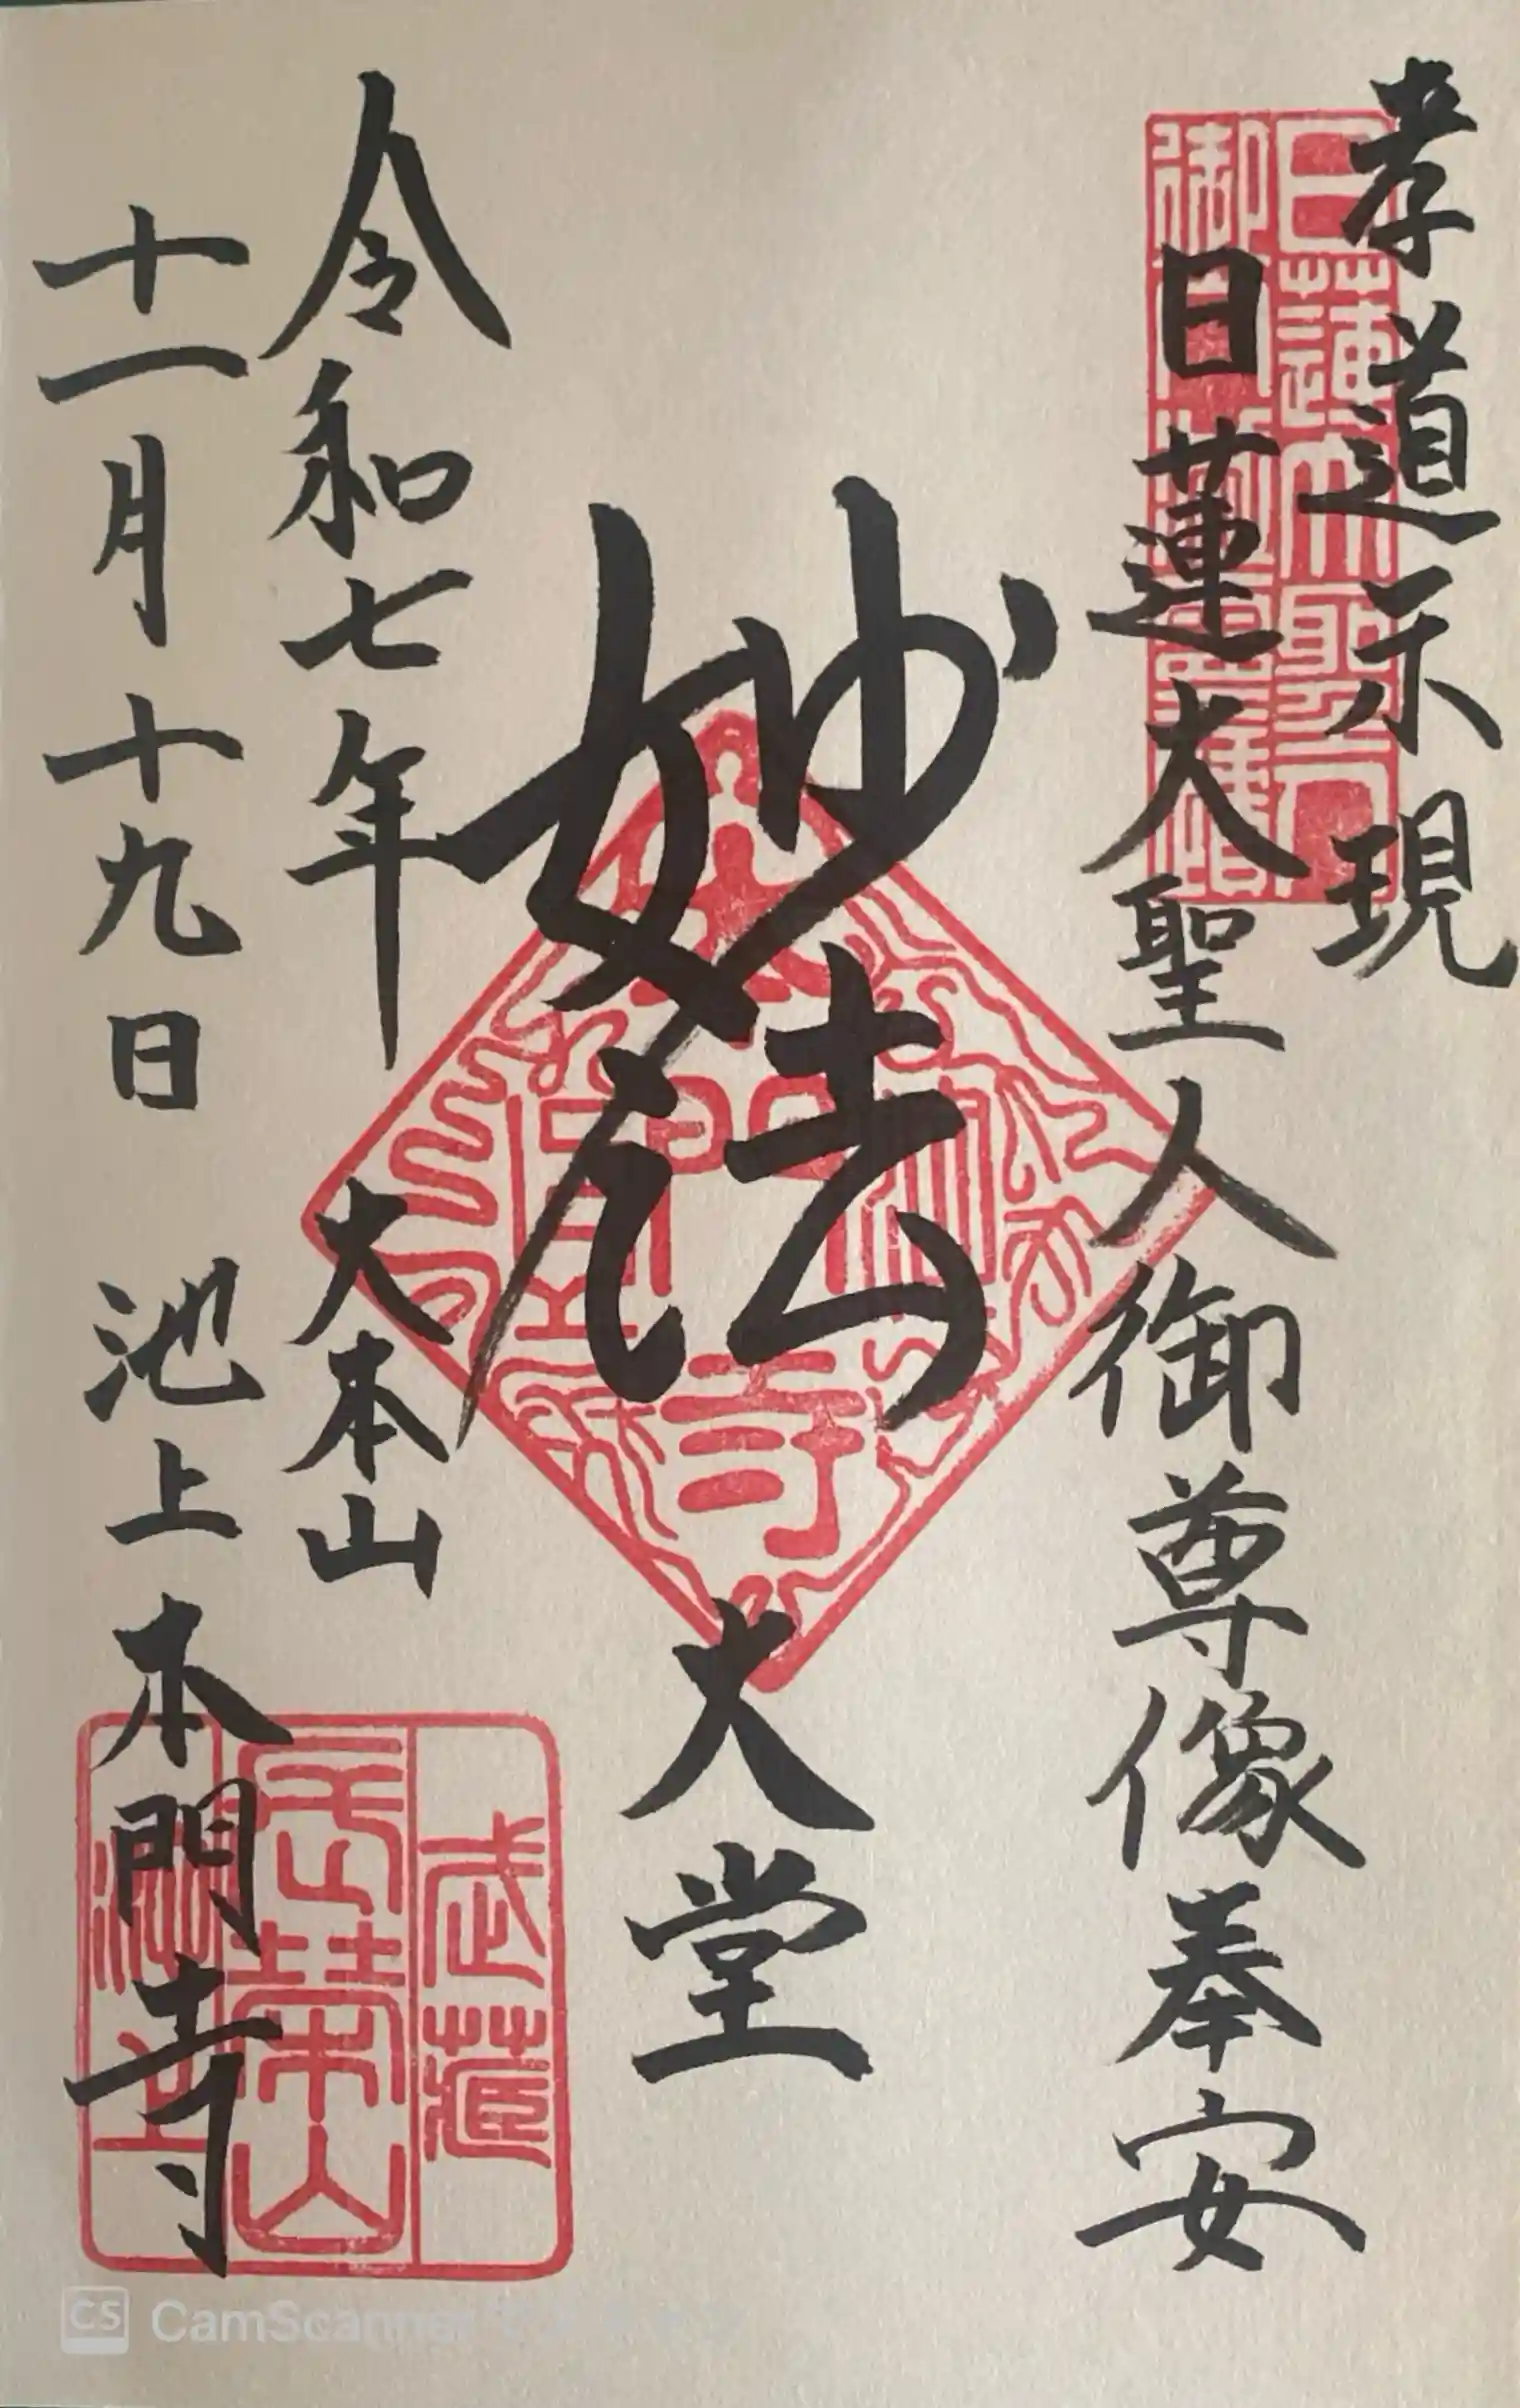 孝道示現
日蓮大聖人御尊像奉安
日蓮大聖人
妙法
大堂
本門寺
令和七年
十一月十九日
大本山
池上本門寺
武蔵
長栄山
池上
CS CamScanner